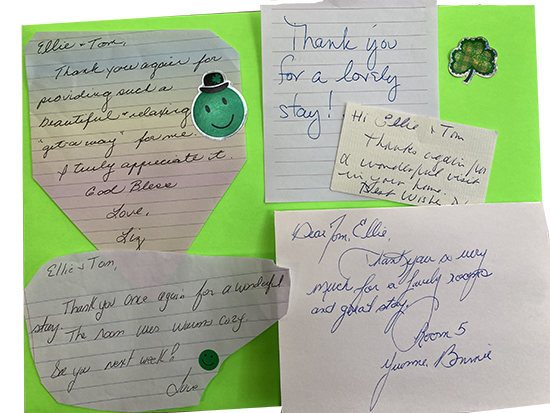 Ellie & Tom,
Thank you again for
providing such a
beautiful & relaxing
"get a way" for me
I truly appreciate it.
God Bless
Love,
Liz
Thank you
for a lovely
stay!
Hi Ellie & Tom
Thanks again for
a wonderful visit
in your home.
Best Wishes
Ellie & Tom,
Thank you once again for a wonderful
stay. The room was warm & cozy
See you next week?
Dear Tom, Ellie,
Thank you so very
much for a lovely
and great stay.
Room 5
Yvonne, Bonnie